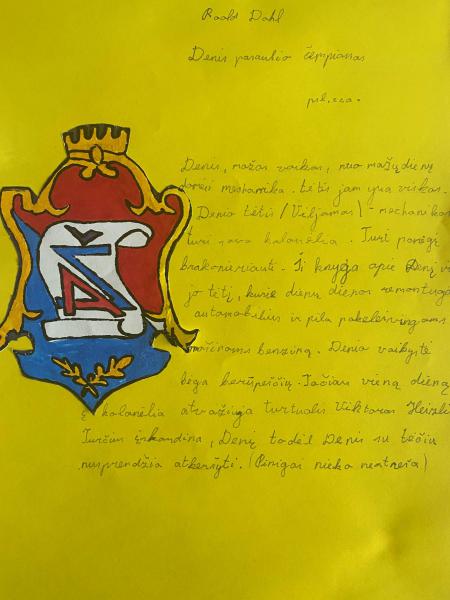 Roald Dahl
Denis pasaulio čempionas
psl. 220.
Denis, mažas vaikas, nuo mažų dienų
domisi mechanika. tėtis jam yra viskas.
Denio tėtis (Viljamas) - mechanikas
turi savo kolonėlia. Turi pomėgį
brakonieriauti. Ši knyga apie Denį ir
jo tėtį, kurie dienų dienas remontuoja
automobilius ir pila pakeleivingoms
mašinoms benziną. Denio vaikystė
bėga berūpeščių. Tačiau vieną dieną
į kolonėlia atvažiuja turtuolis Viktoras
Turčius įskaudina, Denį todėl Denis su tėčiu
nusprendžia atkeršyti. (Pinigai nieko neatneša)